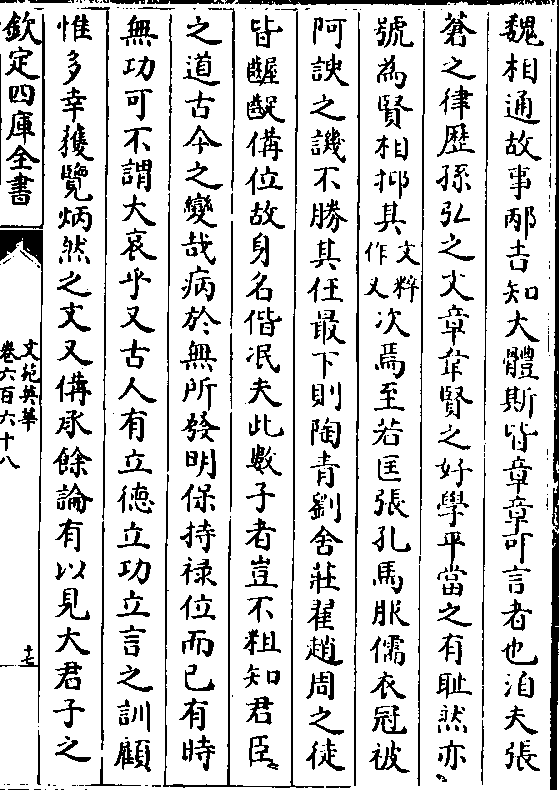 魏相通故事邴吉知大體斯皆章章可言者也洎夫張
蒼之律歴孫弘之文章韋賢之好學平當之有耻然亦
號為賢相抑其文粹作又次焉至若匡張孔馬服儒衣冠被
阿諛之譏不勝其任最下則陶青劉舍莊翟趙周之徒
皆齷齪備位故身名偕泯夫此數子者豈不粗知君臣
之道古今之變哉病於無所發明保持禄位而已有時
無功可不謂大哀乎又古人有立德立功立言之訓顧
惟多幸獲覽炳然之文又備承餘論有以見大君子之
欽定四庫全書
文苑英華
卷六百六十八
十七